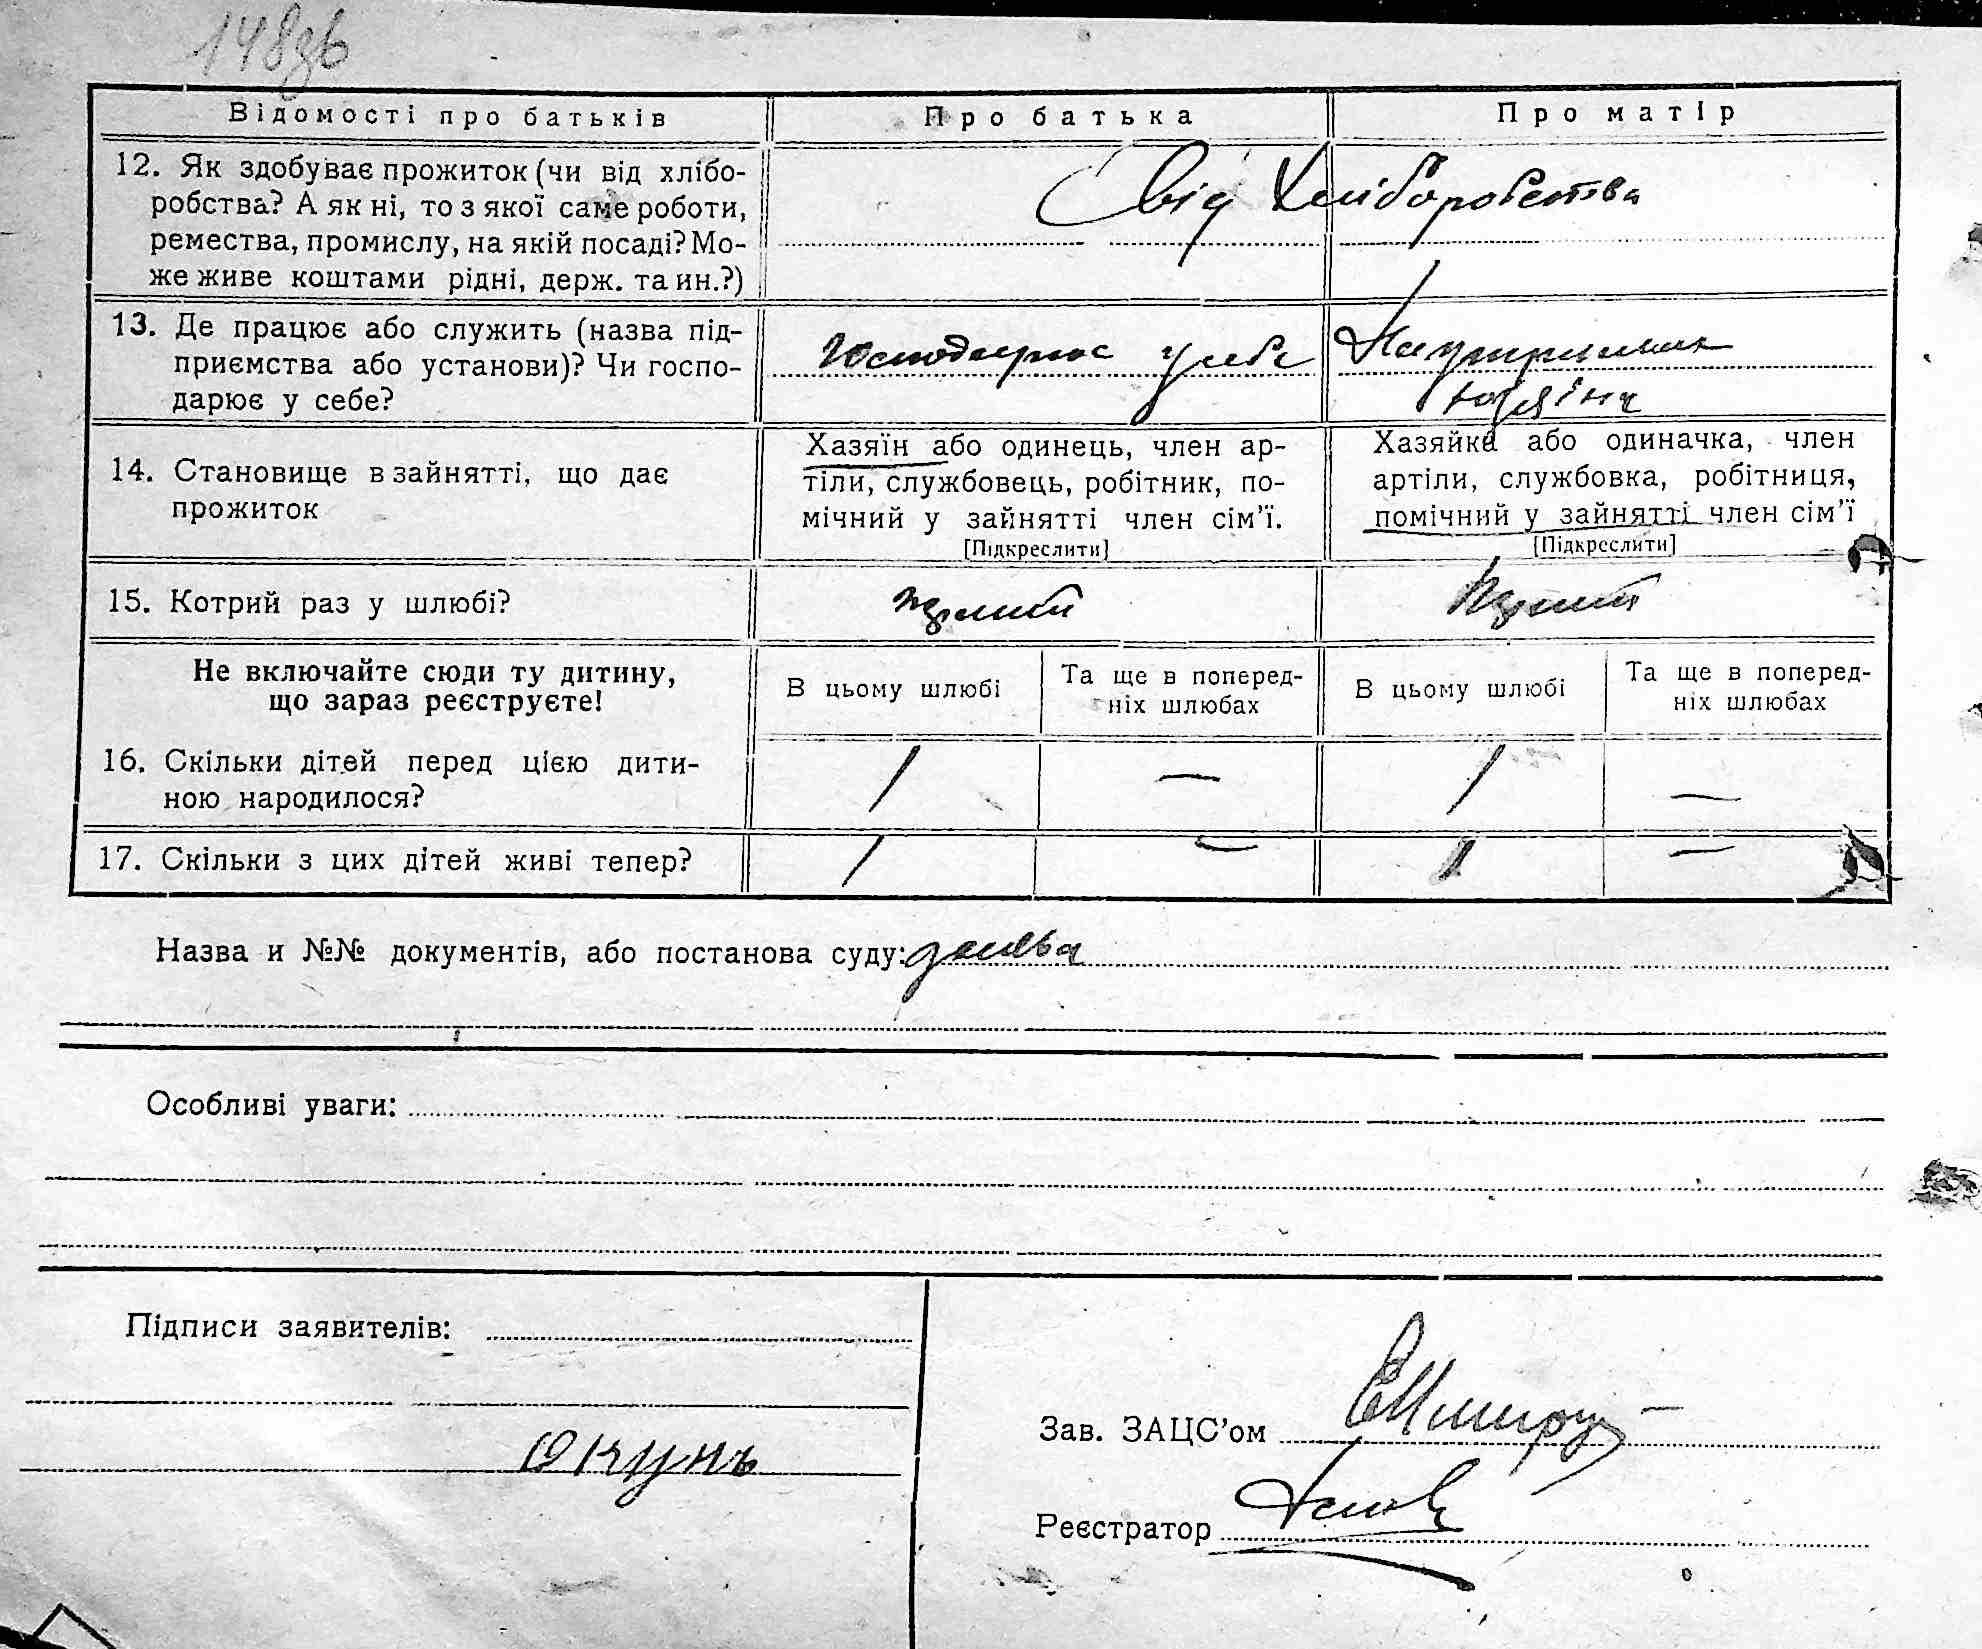 148зв
Відомості про батьків
Про батька
Про матір
12. Як здобуває прожиток (чи від хлібо-
робства? А як ні, то з якої саме роботи,
ремества, промислу, на якій посаді? Мо-
же живе коштами рідні, держ. та ин.?)
від хліборобства
13. Де працює або служить (назва під-
приємства або установи)? Чи госпо-
дарює у себе?
Господарює у себе
14. Становище в зайнятті, що дає
прожиток
Хазяїн або одинець, член ар-
тіли, службовець, робітник, по-
мічний у зайнятті член сім’ї.
[Підкреслити]
Хазяйка або одиначка, член
артіли, службовка, робітниця,
помічний у зайнятті член сім’ї
[Підкреслити]
15. Котрий раз у шлюбі?
Не включайте сюди ту дитину,
що зараз реєструєте!
В цьому шлюбі
Та ще в поперед-
ніх шлюбах
В цьому шлюбі
Та ще в поперед-
ніх шлюбах
16. Скільки дітей перед цією дити-
ною народилося?
1 — 1 —
17. Скільки з цих дітей живі тепер?
1 — 1 —
Назва и №№ документів, або постанова суду: заява
Особливі уваги:
Підписи заявителів:
Окунь
Зав. ЗАЦС’ом
Реєстратор